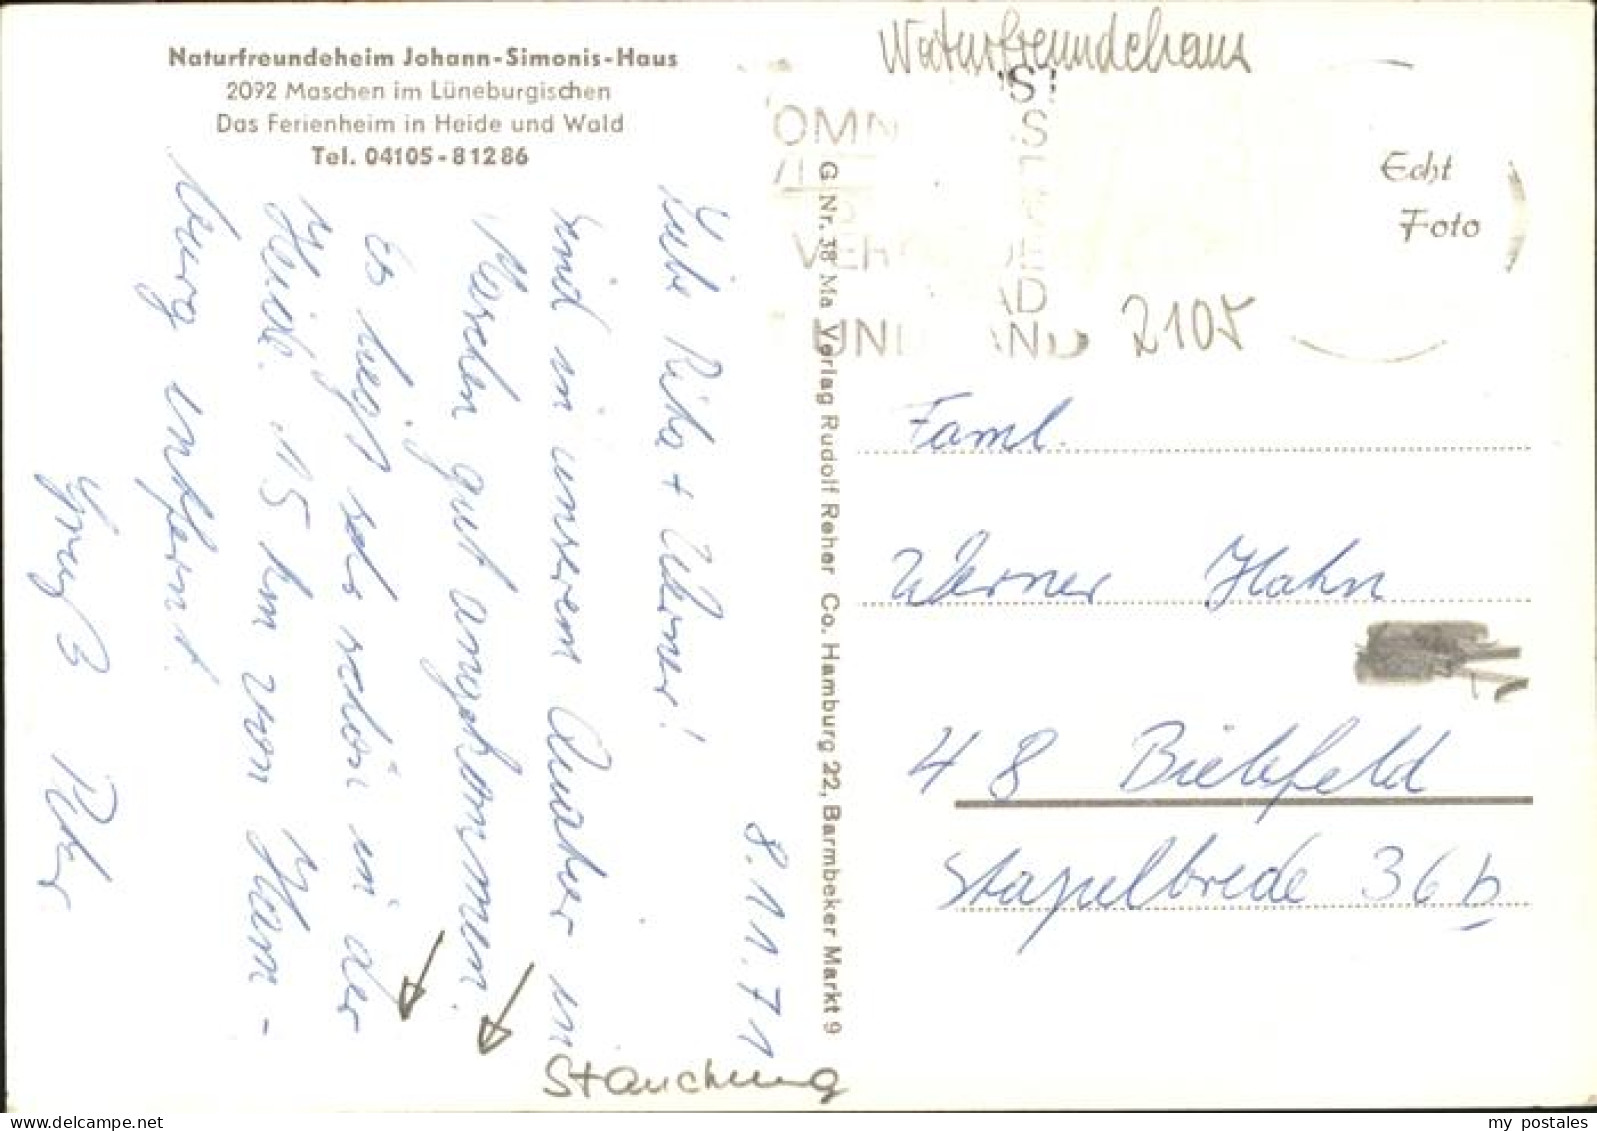 Naturfreundeheim Johann-Simonis-Haus
2092 Maschen im Lüneburgischen
Das Ferienheim in Heide und Wald
Tel. 04105-81286
Naturfreundehaus
Echt
Foto
2105
8.11.71
Liebe Rita + Werner!
sind in unserem Quartier in
Maschen gut angekommen.
Es liegt sehr schön in der
Heide. 15 km von Ham-
burg entfernt.
Gruß Peter
G Nr. 38 Ma Verlag Rudolf Reher Co. Hamburg 22, Barmbeker Markt 9
Faml.
Werner Hahn
48 Bielefeld
Stapelbrede 36b
Stauchung
my postales